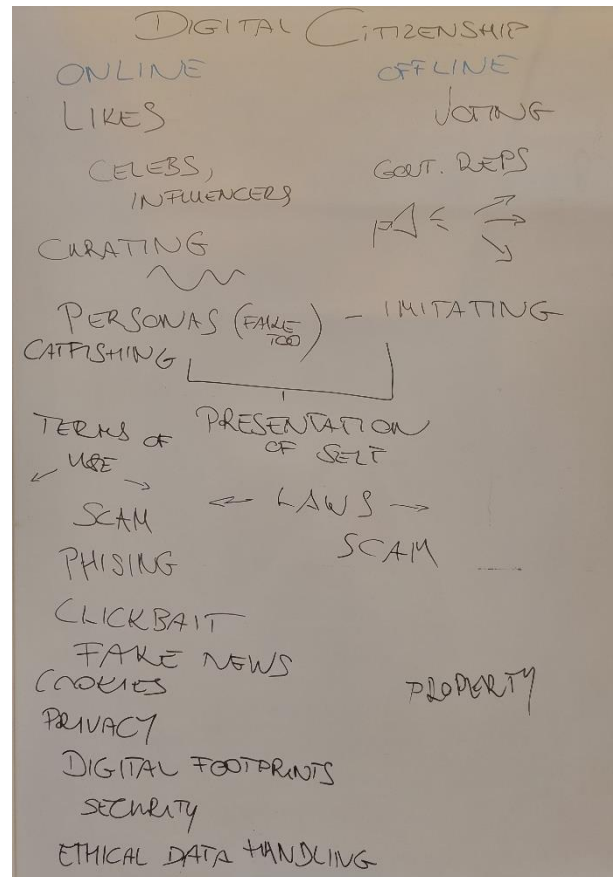 DIGITAL CITIZENSHIP
ONLINE OFFLINE
LIKES VOTING
CELEBS, GOVT. REPS
INFLUENCERS
CURATING
PERSONAS (FAKE TOO) – IMITATING
CATFISHING
PRESENTATION
OF SELF
TERMS OF
USE
← LAWS →
SCAM
SCAM
PHISING
CLICKBAIT
FAKE NEWS
COOKIES
PROPERTY
PRIVACY
DIGITAL FOOTPRINTS
SECURITY
ETHICAL DATA HANDLING